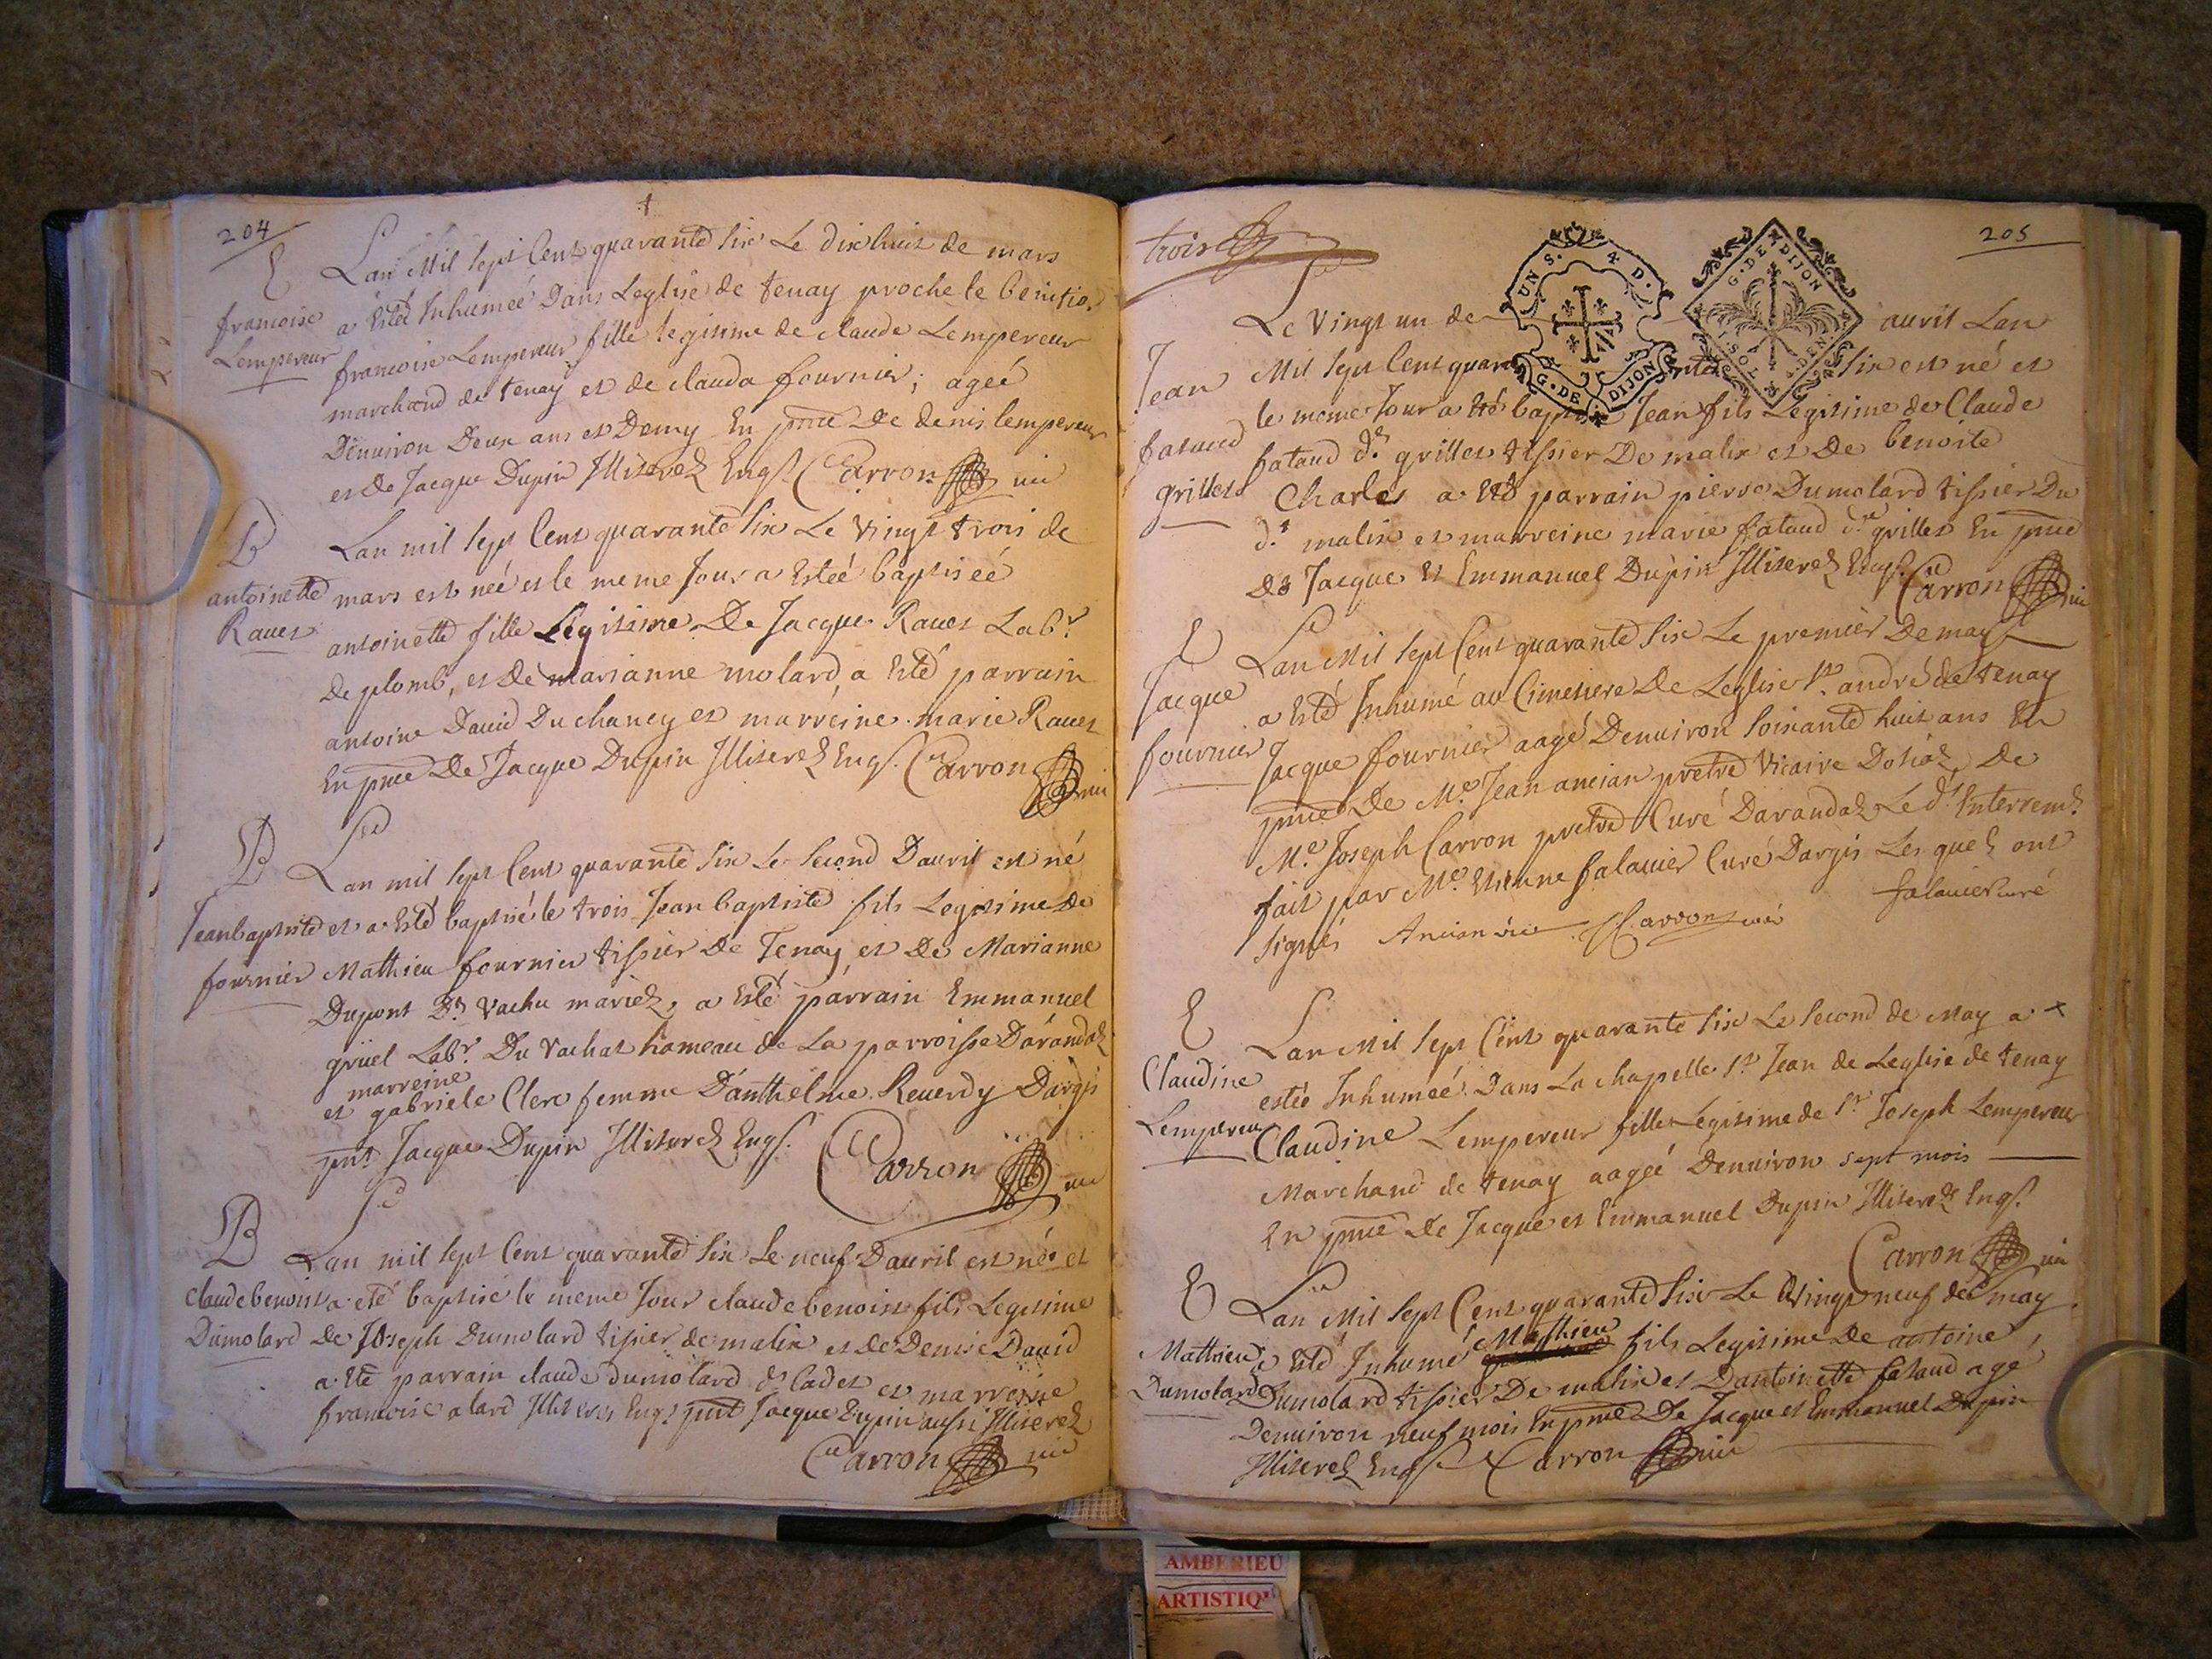 204
E
Lan Mil sept Cent quarante Six Le dixhuit de mars
francoise a Esté Inhumeé Dans Leglise de tenay proche le benitio.
Lempereur francoise Lempereur fille legitime de claude Lempereur
marchand de tenay et de clauda fournier; ageé
Denuiron Deux ans et Demy En pnce De denis lempereur
et de Jacque Dupin Illiterez Enqs Carron
B
Lan mil sept Cent quarante Six Le Vingt trois de
antoinette mars est neé et le meme Jour a Esteé baptiseé
Rauet antoinette fille Legitime De Jacque Rauet Labr.
de plomb, et De marianne molard, a Esté parrain
antoine Dauid Duchaney et marreine marie Rauet
En pnce De Jacque Dupin Illiterez Enqs. Carron
B
Lan mil sept Cent quarante Six Le Second Dauril est né
Jeanbaptiste et a Esté baptisé le trois Jean baptiste fils Legitime de
fournier Mathieu fournier tissier De Tenay et De Marianne
Dupont Dt Vachu mariez, a Esté parrain Emmanuel
gruel Labr. Du Vachat hameau de La parroisse Darandaz
marreine
et gabriele Clerc femme Danthelme Reuerdy Dargis
pnt Jacque Dupin Illiterez Enqs. Carron
B
Lan mil sept Cent quarante Six Le neuf Dauril est né et
claudebenoist a eté baptisé le meme Jour claudebenoist fils Legitime
Dumolard De Joseph Dumolard tissier de malix et de Denise Dauid
a Eté parrain claude dumolard dt Cadet et marreine
francoise alard Illiteres Enqs pnt Jacque Dupin aussi Illiterez
Carron
trois
205
UN S. 4 D.
G. DE DIJON
G. DE DIJON
Le Vingt un de auril Lan
Jean Mil sept Cent quarante Six est né et
le meme Jour a Eté baptisé Jean fils Legitime de Claude
fataud fataud dt grillet tissier De malix et De benoite
grillet Charles a Eté parrain pierre Dumolard tissier Du
dt malix et marreine marie fataud dte grillet En pnce
De Jacque Et Emmanuel Dupin Illiterez Enqs. Carron
E
Lan Mil sept Cent quarante Six Le premier De may
Jacque a Esté Inhumé au Cimetiere De Leglise St. andré de tenay
fournier Jacque fournier aagé Denuiron Soixante huit ans En
pnce De Me. Jean ancian pretre Vicaire Dotiaz De
Me. Joseph Carron pretre Curé Darandaz Le dt Interremt
fait par Me. Etienne falauier Curé Dargis Les quelz ont
signés Ancian vic. J Carron curé falauier curé
E
Lan Mil sept Cent quarante Six Le Second de May a
Claudine estée Inhumeé Dans La chapelle St Jean de Leglise de tenay
Lempereur Claudine Lempereur fille Legitime de Sr Joseph Lempereur
Marchand de tenay aageé Denuiron sept mois
En pnce De Jacque et Emmanuel Dupin Illiterez Enqs.
Carron
E
Lan Mil sept Cent quarante Six Le Vingt neuf de may
Mathieu a Esté Inhumé Mathieu fils Legitime De antoine
Dumolard Dumolard tissier De malix et Dantoinette fataud agé
Denuiron neuf mois En pnce De Jacque et Emmanuel Dupin
Illiterez Enqs Carron
AMBERIEU
ARTISTIQ